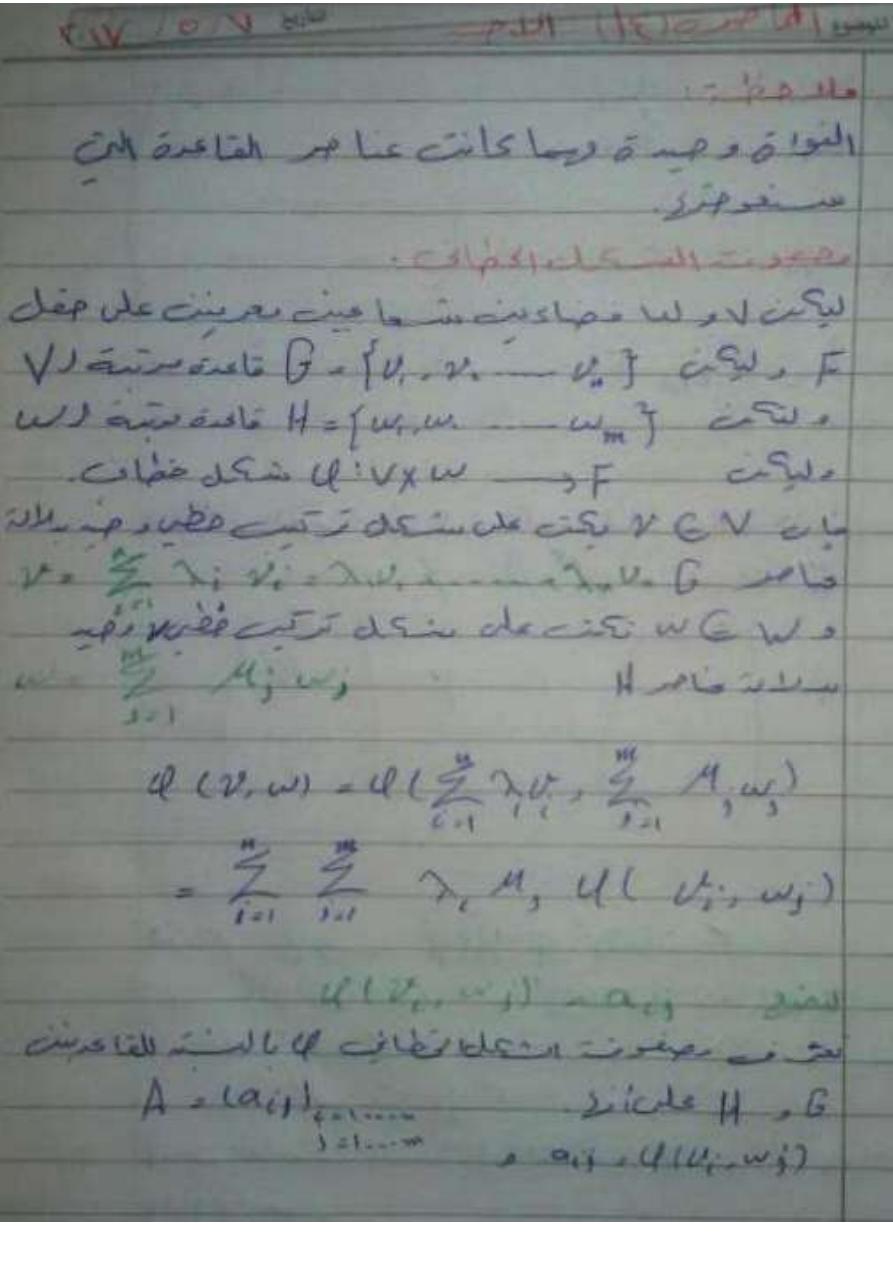 الموضوع المحاضرة (١٤) التاريخ ٧ / ٥ / ٢٠١٧
ملاحظة:
النواة وحيدة مهما كانت عناصر القاعدة التي
سنعوضها.
مصفوفة الشكل الخطاني:
ليكن V و W فضاءين شعاعيين معرفين على حقل
F وليكن G = {v₁, v₂ ...... vₙ} قاعدة مرتبة لـ V
ولتكن H = {w₁, w₂ ...... wₘ} قاعدة مرتبة لـ W
وليكن φ: V × W → F شكل خطاني.
فإن v ∈ V يكتب على شكل تركيب خطي وحيد بدلالة
عناصر G v = Σⁿᵢ₌₁ λᵢ vᵢ = λ₁v₁ ...... λₙvₙ
و w ∈ W تكتب على شكل تركيب خطي وحيد
بدلالة عناصر H w = Σᵐⱼ₌₁ μⱼ wⱼ
φ(v, w) = φ(Σⁿᵢ₌₁ λᵢvᵢ , Σᵐⱼ₌₁ μⱼwⱼ)
= Σⁿᵢ₌₁ Σᵐⱼ₌₁ λᵢ μⱼ φ(vᵢ, wⱼ)
لنضع φ(vᵢ, wⱼ) = aᵢⱼ
نعرف مصفوفة الشكل الخطاني φ بالنسبة للقاعدتين
G و H على أنها A = (aᵢⱼ) i=1....n j=1...m
و aᵢⱼ = φ(vᵢ, wⱼ)